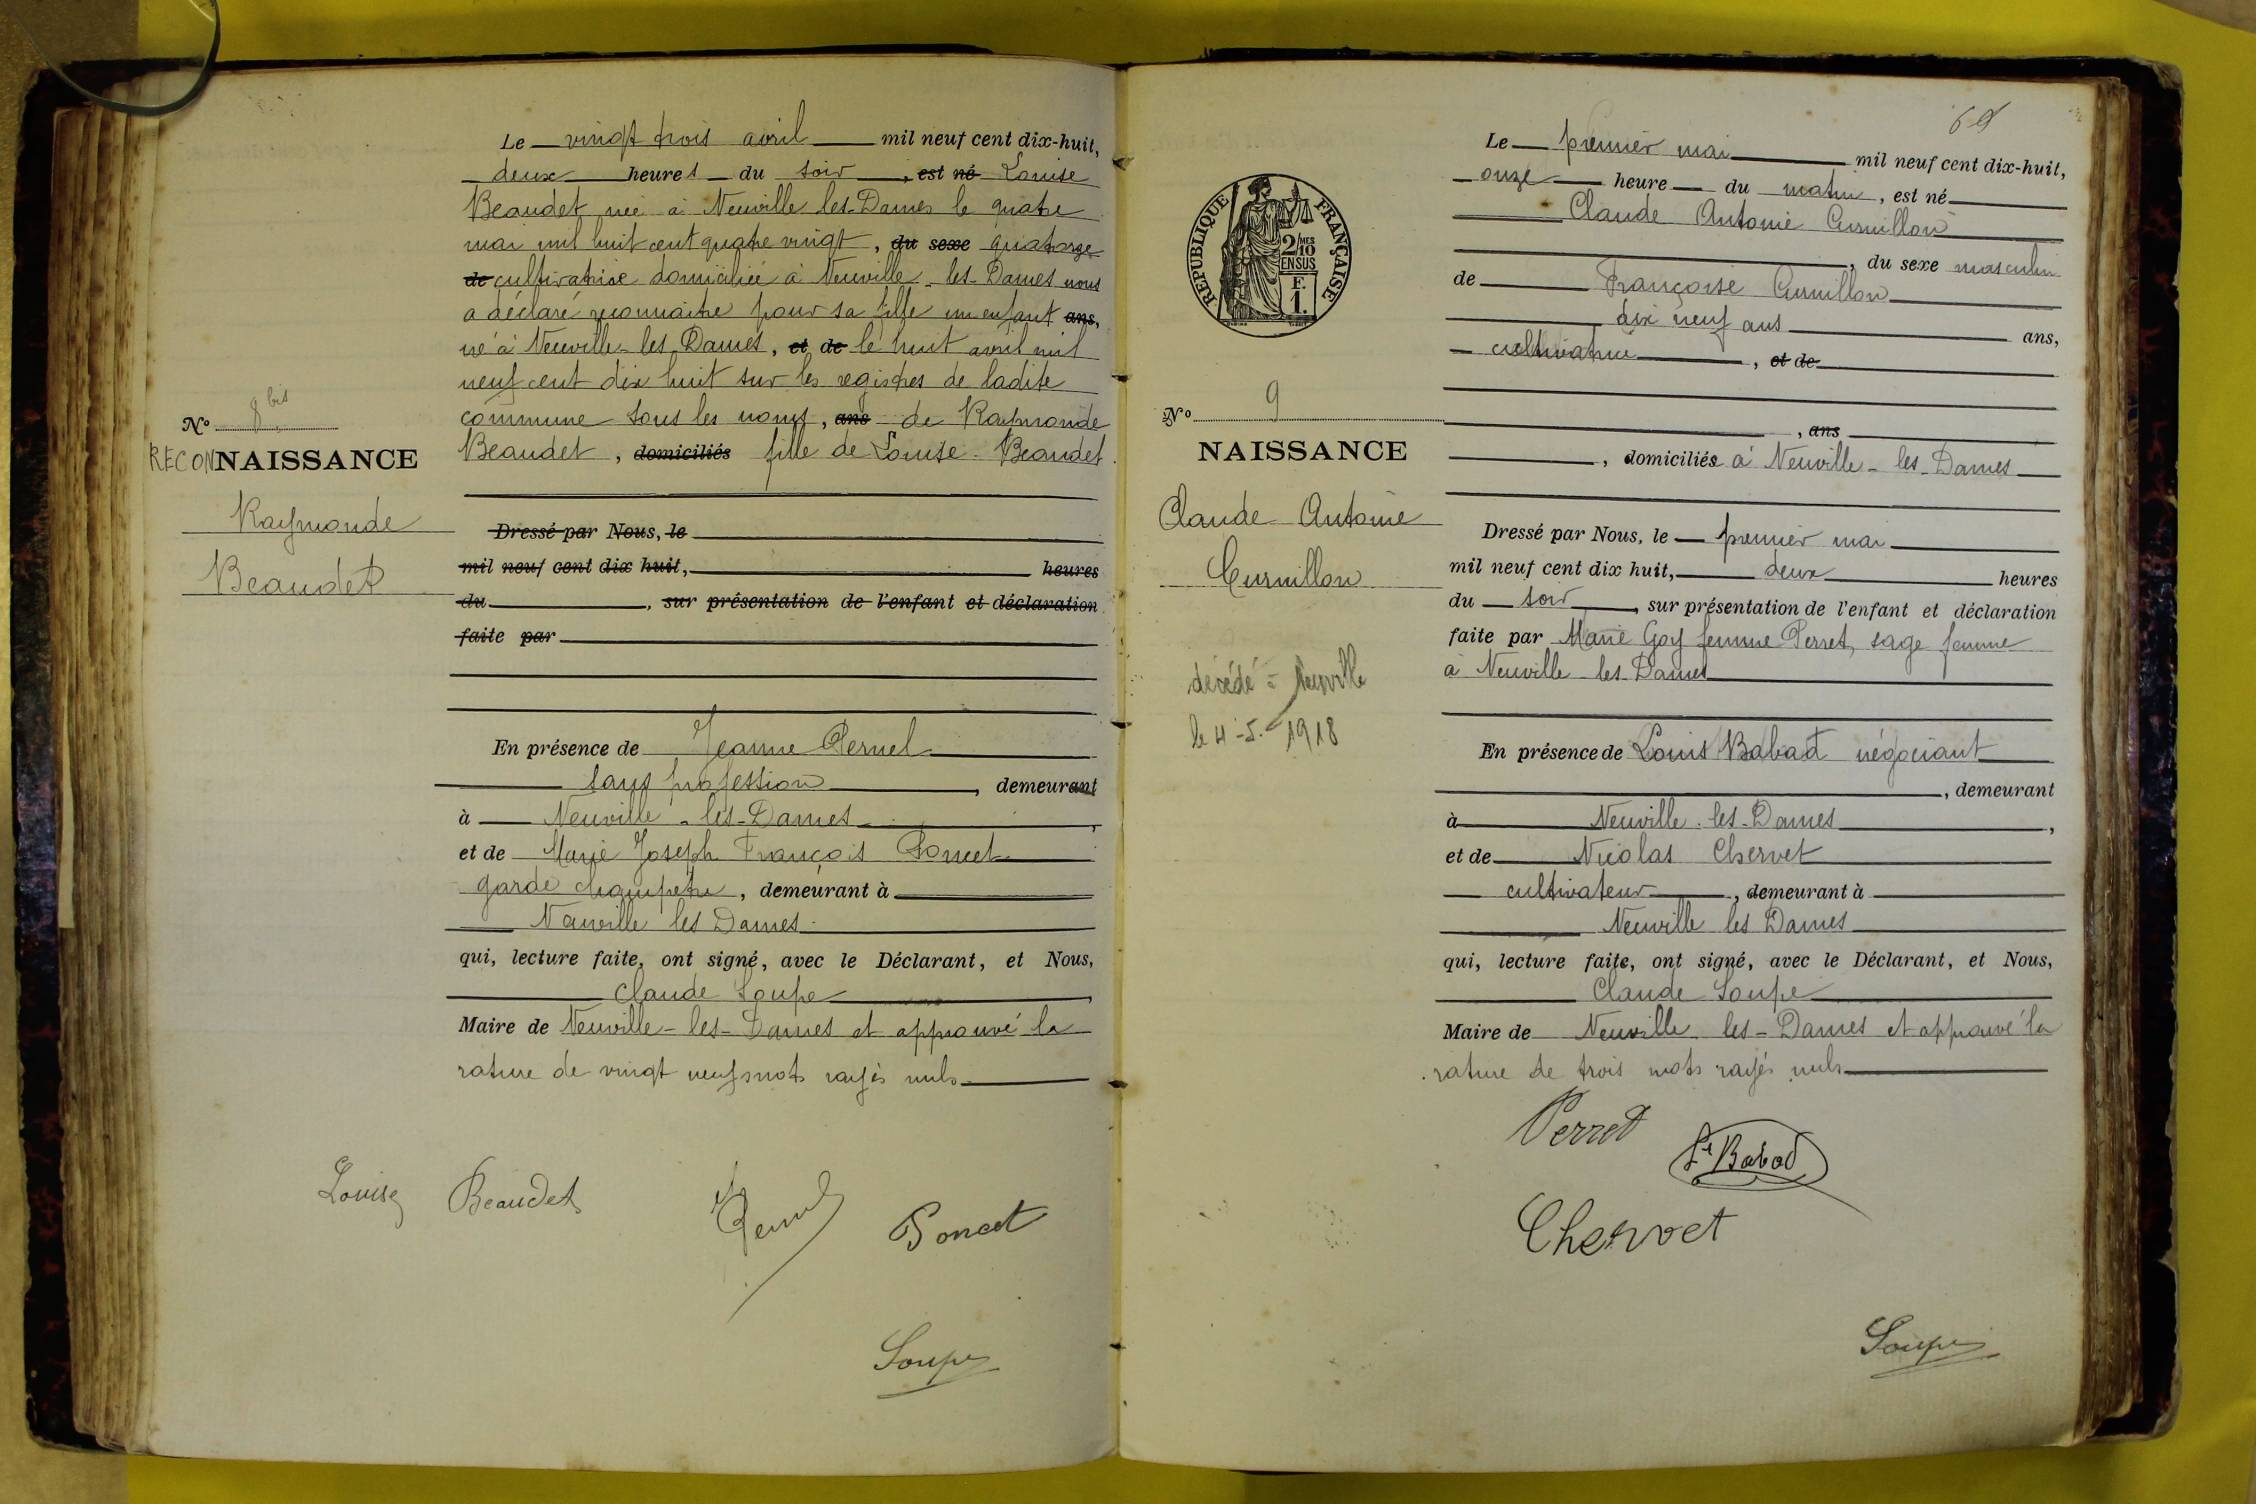 Le vingt trois avril mil neuf cent dix-huit,
deux heures du soir, est né Louise
Beaudet née à Neuville les-Dames le quatre
mai mil huit cent quatre vingt, du sexe quatorze
de cultivatrice domiciliée à Neuville-les-Dames nous
a déclaré reconnaitre pour sa fille un enfant ans,
né à Neuville-les Dames, et de le huit avril mil
neuf cent dix huit sur les registres de ladite
commune sous les noms, ans de Raymonde
Beaudet, domiciliés fille de Louise Beaudet
No 8 bis
RECONNAISSANCE
Raymonde
Beaudet
Dressé par Nous, le
mil neuf cent dix huit, heures
du, sur présentation de l'enfant et déclaration
faite par
En présence de Jeanne Pernel
sans profession, demeurant
à Neuville-les-Dames,
et de Marie Joseph François Poncet
garde champetre, demeurant à
Neuville les Dames
qui, lecture faite, ont signé, avec le Déclarant, et Nous,
Claude Soupe,
Maire de Neuville-les-Dames et approuvé la
rature de vingt neuf mots rayés nuls
Louise Beaudet
Poncet
Soupe
69
RÉPUBLIQUE FRANÇAISE
2/10 MES
EN SUS
F.
1.
Le premier mai mil neuf cent dix-huit,
onze heure du matin, est né
Claude Antoine Curnillon
, du sexe masculin
de Françoise Curnillon
dix neuf ans ans,
cultivatrice, et de
, ans
, domiciliés à Neuville-les-Dames
No 9
NAISSANCE
Claude Antoine
Curnillon
décédé à Neuville
le 4-5-1918
Dressé par Nous, le premier mai
mil neuf cent dix huit, deux heures
du soir, sur présentation de l'enfant et déclaration
faite par Marie Goy femme Perret, sage femme
à Neuville-les-Dames
En présence de Louis Babad négociant
, demeurant
à Neuville-les-Dames,
et de Nicolas Chervet
cultivateur, demeurant à
Neuville les Dames
qui, lecture faite, ont signé, avec le Déclarant, et Nous,
Claude Soupe
Maire de Neuville les-Dames et approuvé la
rature de trois mots rayés nuls
Perret
Ls Babad
Chervet
Soupe